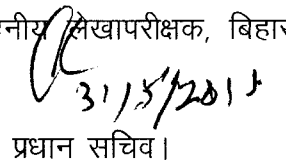 लेखापरीक्षक, बिहार
31/5/2011
प्रधान सचिव।